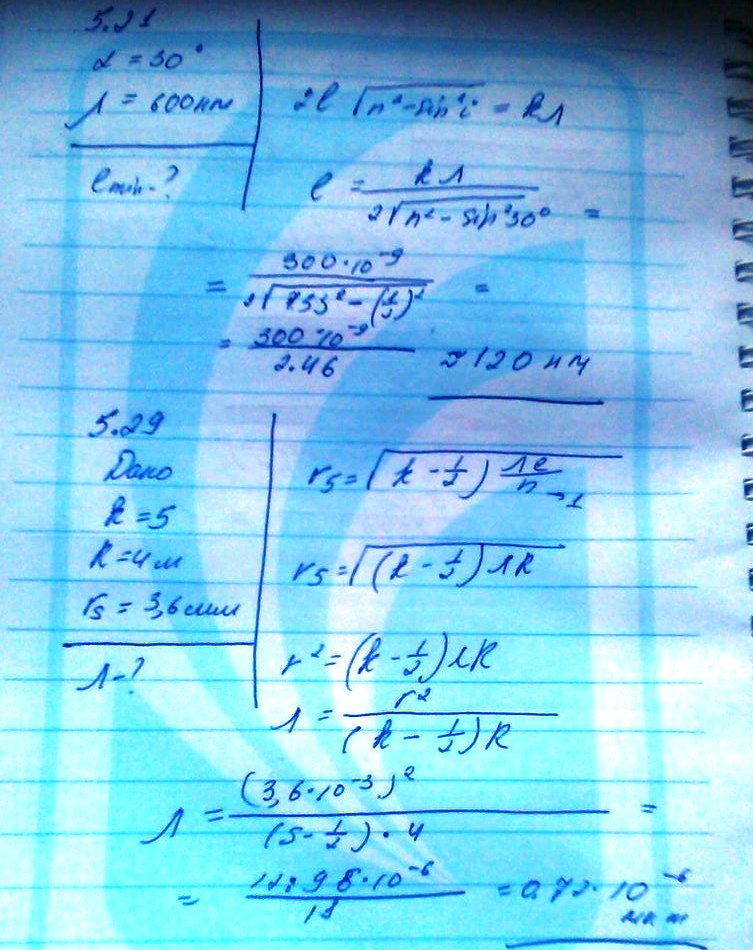 5.21
α = 30°
λ = 600 нм
l min - ?
2l √(n² - sin² i) = kλ
l = kλ / 2√(n² - sin² 30°) =
= 300·10⁻⁹ / 2√(1,33² - (1/2)²) =
= 300·10⁻⁹ / 2.46 ≈ 120 нм
5.29
Дано
k = 5
R = 4 м
r₅ = 3,6 мм
λ - ?
r₅ = √((k - 1/2) λR/n) → 1
r₅ = √((k - 1/2) λR)
r² = (k - 1/2) λR
λ = r² / (k - 1/2) R
λ = (3,6·10⁻³)² / (5 - 1/2) · 4 =
= 0,72·10⁻⁶